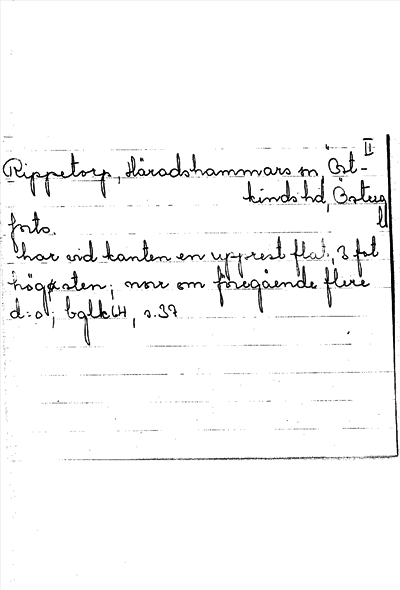 II
Rippetorp, Häradshammars sn, Öst-
kinds hd, Österg
forts.
har vid kanten en upprest flat, 3 fot
hög sten; norr om föregående flere
d:o; bglk 64, s. 37